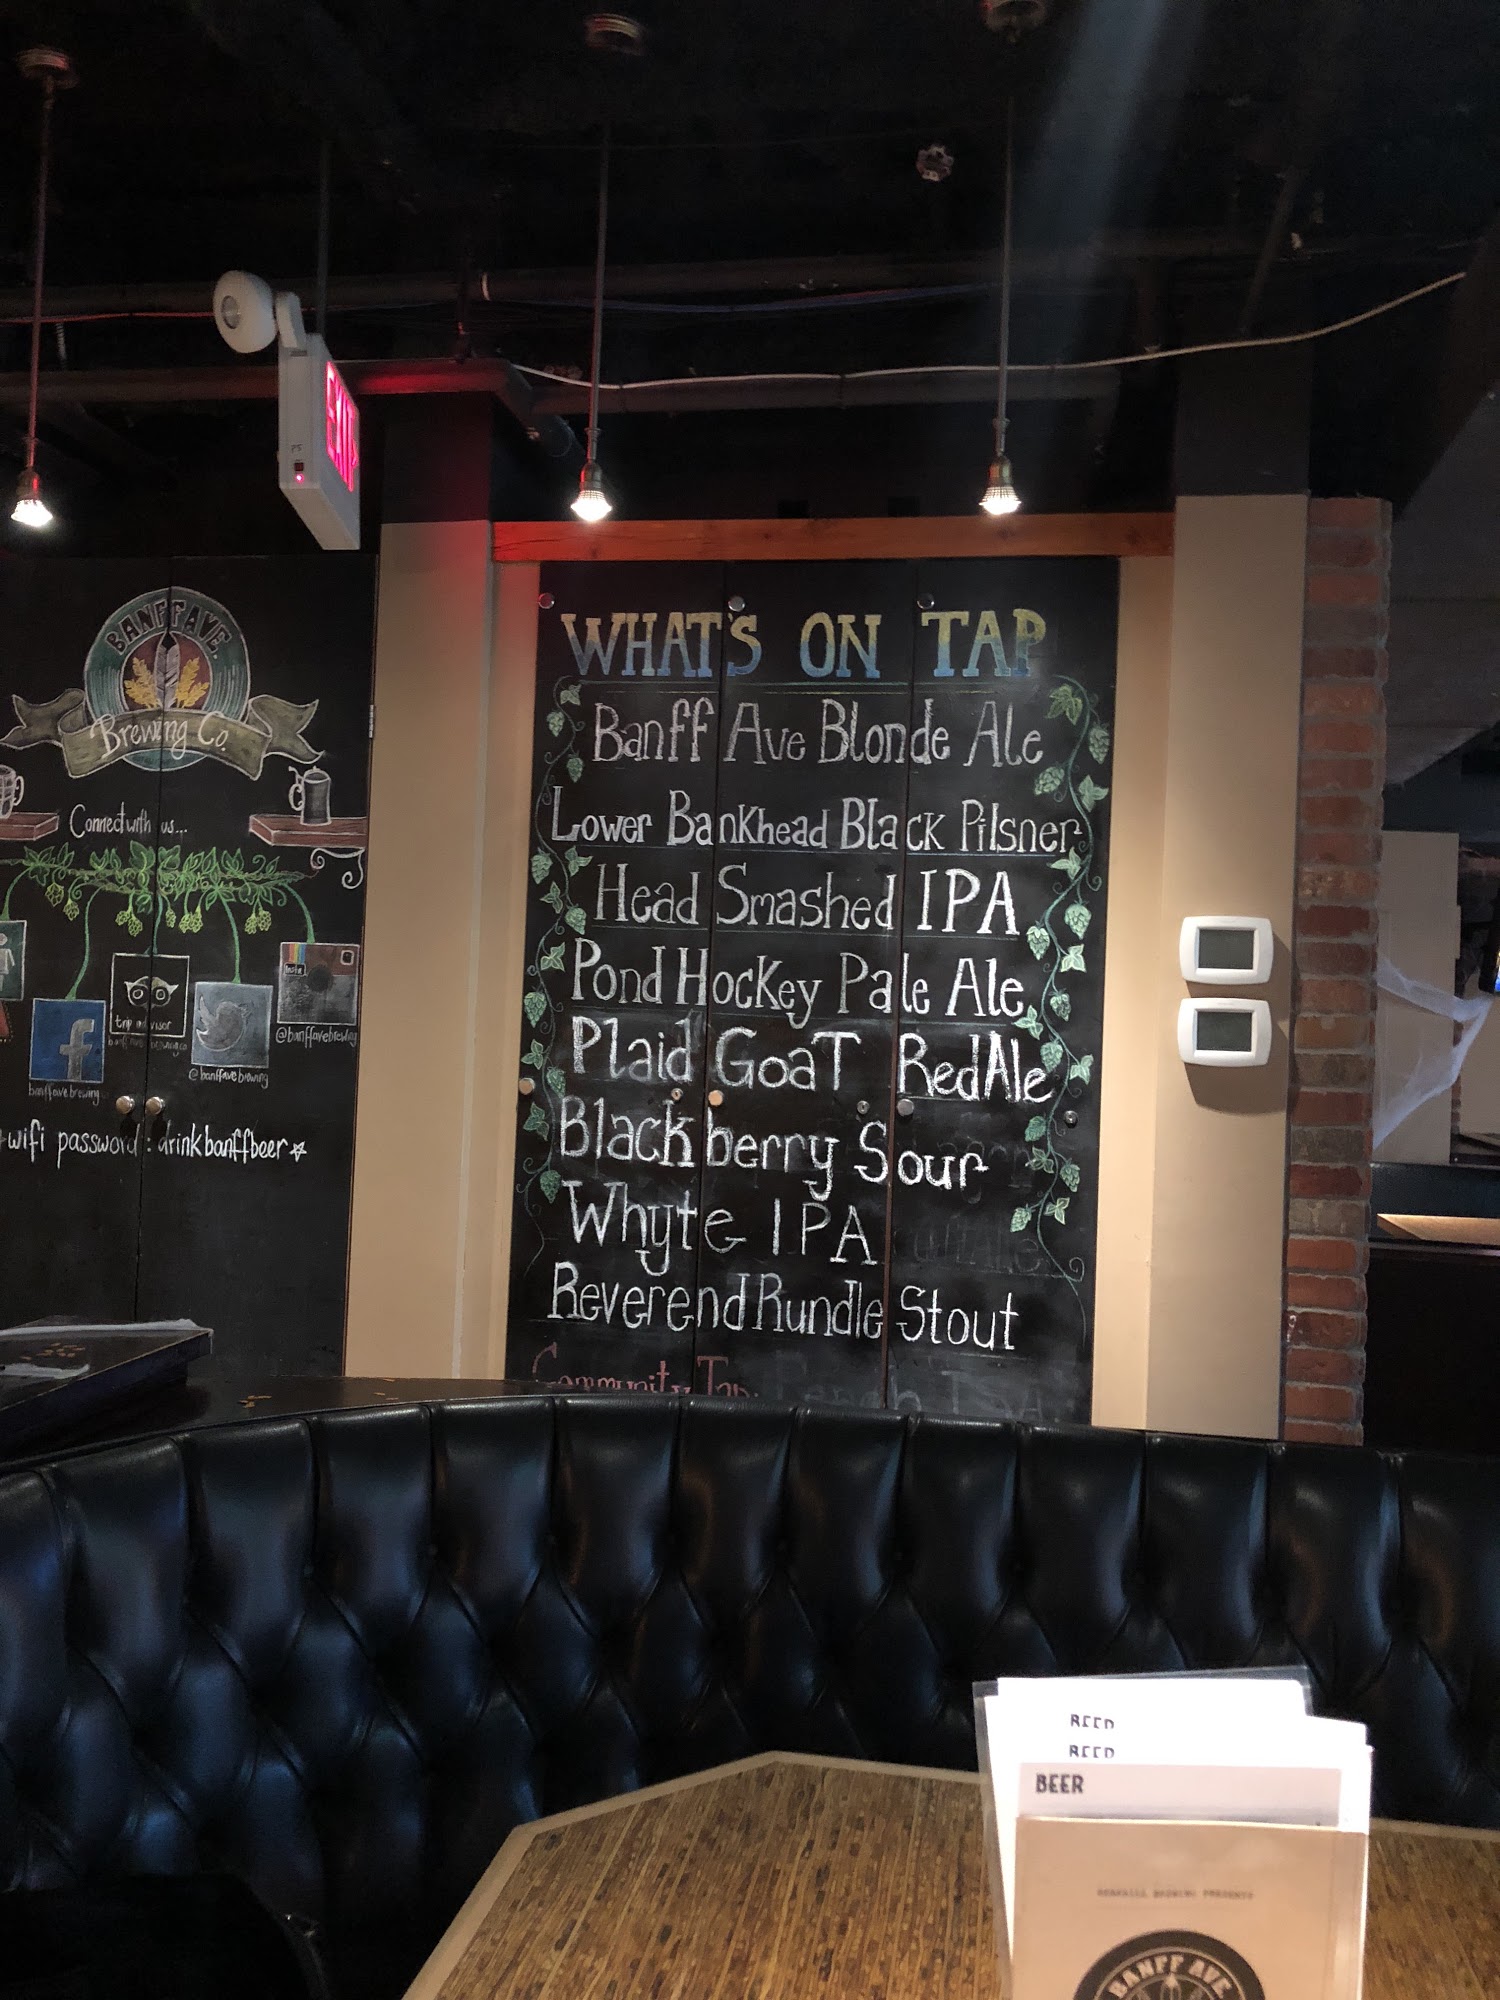 EXIT
BANFF AVE.
Brewing Co.
Connect with us...
trip advisor
Insta
banffavebrewingco
@banffavebrewing
banffavebrewing
@banffavebrewing
wifi password: drinkbanffbeer
WHAT'S ON TAP
Banff Ave Blonde Ale
Lower Bankhead Black Pilsner
Head Smashed IPA
Pond Hockey Pale Ale
Plaid Goat Red Ale
Blackberry Sour
Whyte IPA
Reverend Rundle Stout
Community Tap:
BEER
BEER
BEER
BANFF AVE